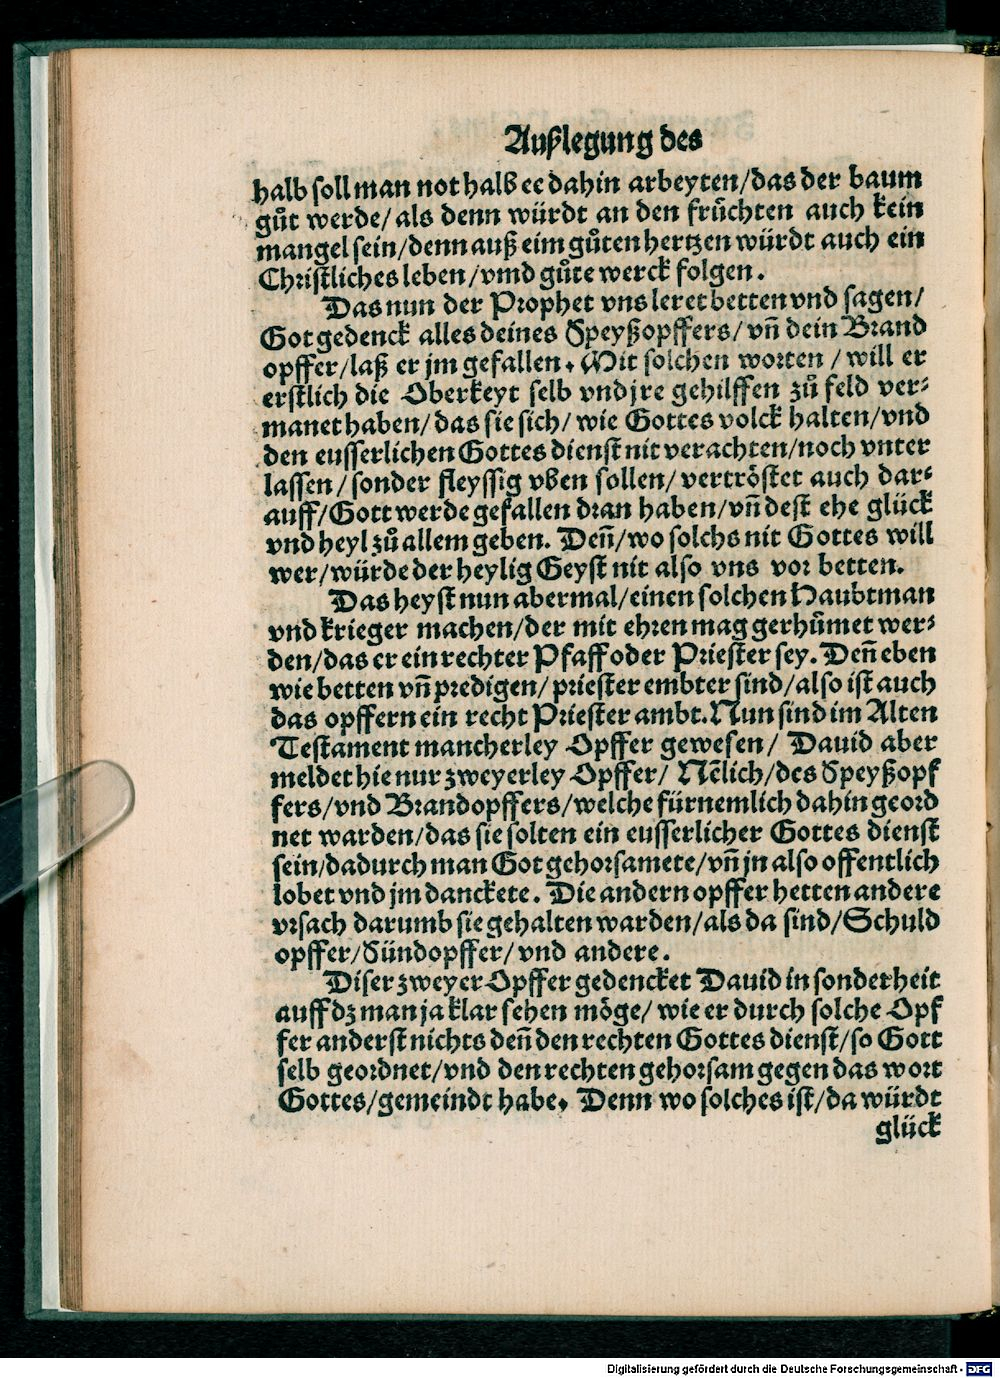 Außlegung des
halb soll man not halb ee dahin arbeyten/das der baum
gůt werde/ als denn würdt an den frůchten auch kein
mangel sein/denn auß eim gůten hertzen würdt auch ein
Christliches leben/vmd gůte werck folgen.
Das nun der Prophet vns leret betten vnd sagen/
Got gedenck alles deines Speyßopffers/ vñ dein Brand
opffer/laß er jm gefallen. Mit solchen worten / will er
erstlich die Oberkeyt selb vnd jre gehilffen zů feld ver⸗
manet haben/das sie sich/ wie Gottes volck halten/vnd
den eusserlichen Gottes dienst nit verachten/noch vnter
lassen/sonder fleyssig vben sollen/ vertröstet auch dar⸗
auff/Gott werde gefallen dran haben/vñ dest ehe glück
vnd heyl zů allem geben. Deñ/wo solchs nit Gottes will
wer/würde der heylig Geyst nit also vns vor betten.
Das heyst nun abermal/einen solchen Haubtman
vnd krieger machen/der mit ehren mag gerhůmet wer⸗
den/das er ein rechter Pfaff oder Priester sey. Deñ eben
wie betten vñ predigen/ priester embter sind/also ist auch
das opffern ein recht Priester ambt. Nun sind im Alten
Testament mancherley Opffer gewesen/ Dauid aber
meldet hie nur zweyerley Opffer/ Nẽlich/des Speyßopf
fers/vnd Brandopffers/welche fürnemlich dahin geord
net warden/das sie solten ein eusserlicher Gottes dienst
sein/dadurch man Got gehorsamete/vñ jn also offentlich
lobet vnd jm danckete. Die andern opffer hetten andere
vrsach darumb sie gehalten warden/als da sind/Schuld
opffer/Sündopffer/ vnd andere.
Diser zweyer Opffer gedencket Dauid in sonderheit
auff dz man ja klar sehen möge/ wie er durch solche Opf
fer anderst nichts deñ den rechten Gottes dienst/so Gott
selb geordnet/vnd den rechten gehorsam gegen das wort
Gottes/gemeindt habe. Denn wo solches ist/da würdt
glück
Digitalisierung gefördert durch die Deutsche Forschungsgemeinschaft - DFG